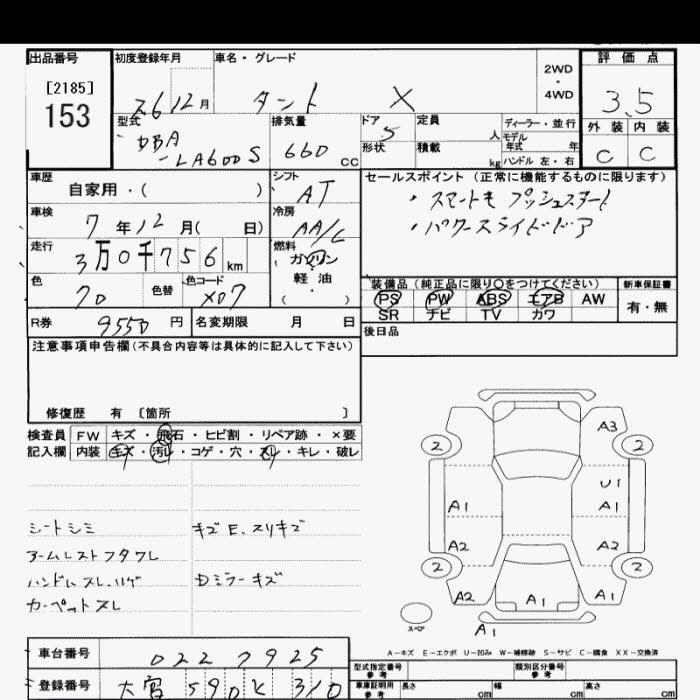 出品番号
[2185]
153
初度登録年月
ス6 12 月
車名・グレード
タント X
2WD
・
4WD
評価点
3.5
外装 内装
C C
型式
DBA
-LA600S
排気量
660 CC
ドア
5
形状
定員
人
積載
kg
ディーラー・並行
モデル
年式 年
ハンドル 左・右
車歴
自家用・( )
シフト
AT
セールスポイント (正常に機能するものに限ります)
・スマートキ プッシュスタート
・パワースライドドア
車検
7 年 12 月( 日)
冷房
AA/C
走行
3 万 0 千 7 5 6 km
燃料
ガソリン
軽油
( )
色
色替
色コード
X07
装備品 (純正品に限り○をつけてください)
PS PW ABS エアB AW
SR ナビ TV カワ
新車保証書
有・無
R券 9550 円
名変期限 月 日
後日品
注意事項申告欄(不具合内容等は具体的に記入して下さい)
修復歴 有 〔箇所 〕
検査員 FW キズ・飛石・ヒビ割・リペア跡・×要
記入欄 内装 キズ・汚レ・コゲ・穴・スレ・キレ・破レ
シートシミ
アームレストフタワレ
ハンドルスレ、ハゲ
カーペットスレ
キズE、スリキズ
Dミラーキズ
A3
2 2
U1
A1 A1
A2 A2
2 2
A2 A1 A1
スペア
A1
A-キズ E-エクボ U-凹み W-補修跡 S-サビ C-腐食 XX-交換済
車台番号 0227925
登録番号 大宮 590 と 310
型式指定番号
参考
類別区分番号
参考
車庫証明用
参考
長さ cm 幅 cm 高さ cm